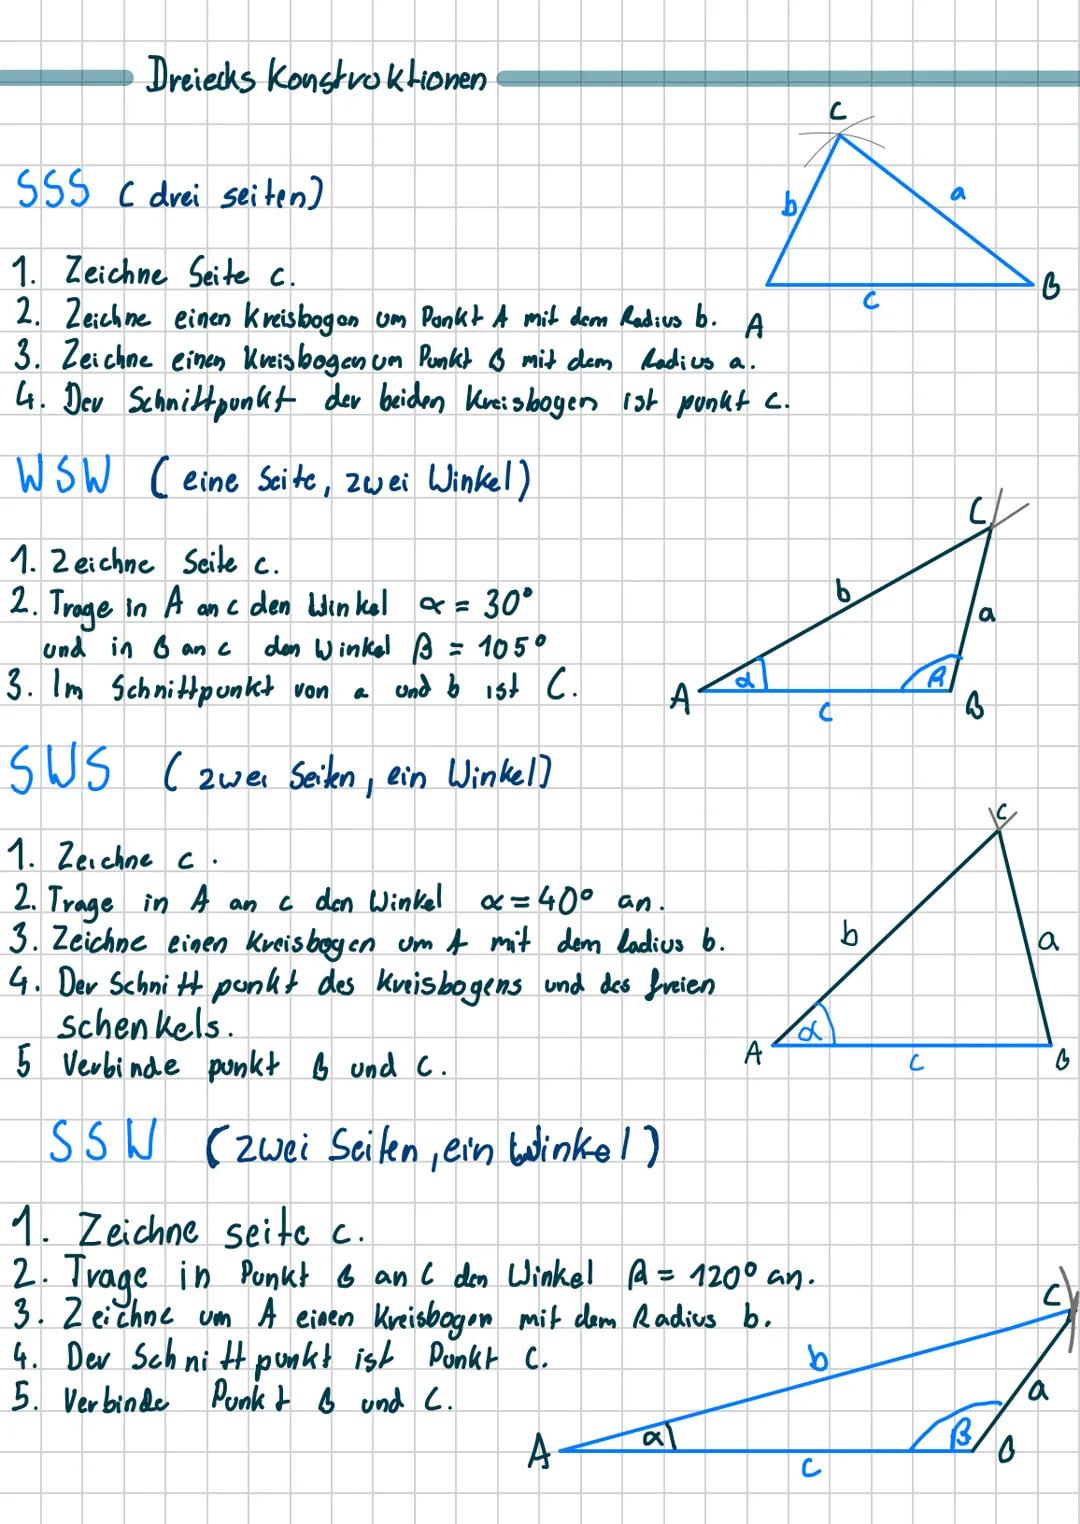 Dreiecks Konstruktionen
C
SSS (drei seiten)
b
a
1. Zeichne Seite c.
B
c
2. Zeichne einen Kreisbogen um Punkt A mit dem Radius b.
A
3. Zeichne einen Kreisbogen um Punkt B mit dem Radius a.
4. Der Schnittpunkt der beiden Kreisbogen ist punkt C.
WSW (eine Seite, zwei Winkel)
C
1. Zeichne Seite c.
b
2. Trage in A an c den Winkel α = 30°
a
und in B an c den Winkel β = 105°
3. Im Schnittpunkt von a und b ist C.
A
α
β
B
c
SWS (zwei Seiten, ein Winkel)
C
1. Zeichne c.
2. Trage in A an c den Winkel α = 40° an.
3. Zeichne einen Kreisbogen um A mit dem Radius b.
b
a
4. Der Schnittpunkt des Kreisbogens und des freien
schenkels.
α
5 Verbinde punkt B und C.
A
c
B
SSW (zwei Seiten, ein Winkel)
1. Zeichne seite c.
2. Trage in Punkt B an C den Winkel β = 120° an.
C
3. Zeichne um A einen Kreisbogen mit dem Radius b.
4. Der Schnittpunkt ist Punkt C.
b
5. Verbinde Punkt B und C.
a
A
α
β
B
c